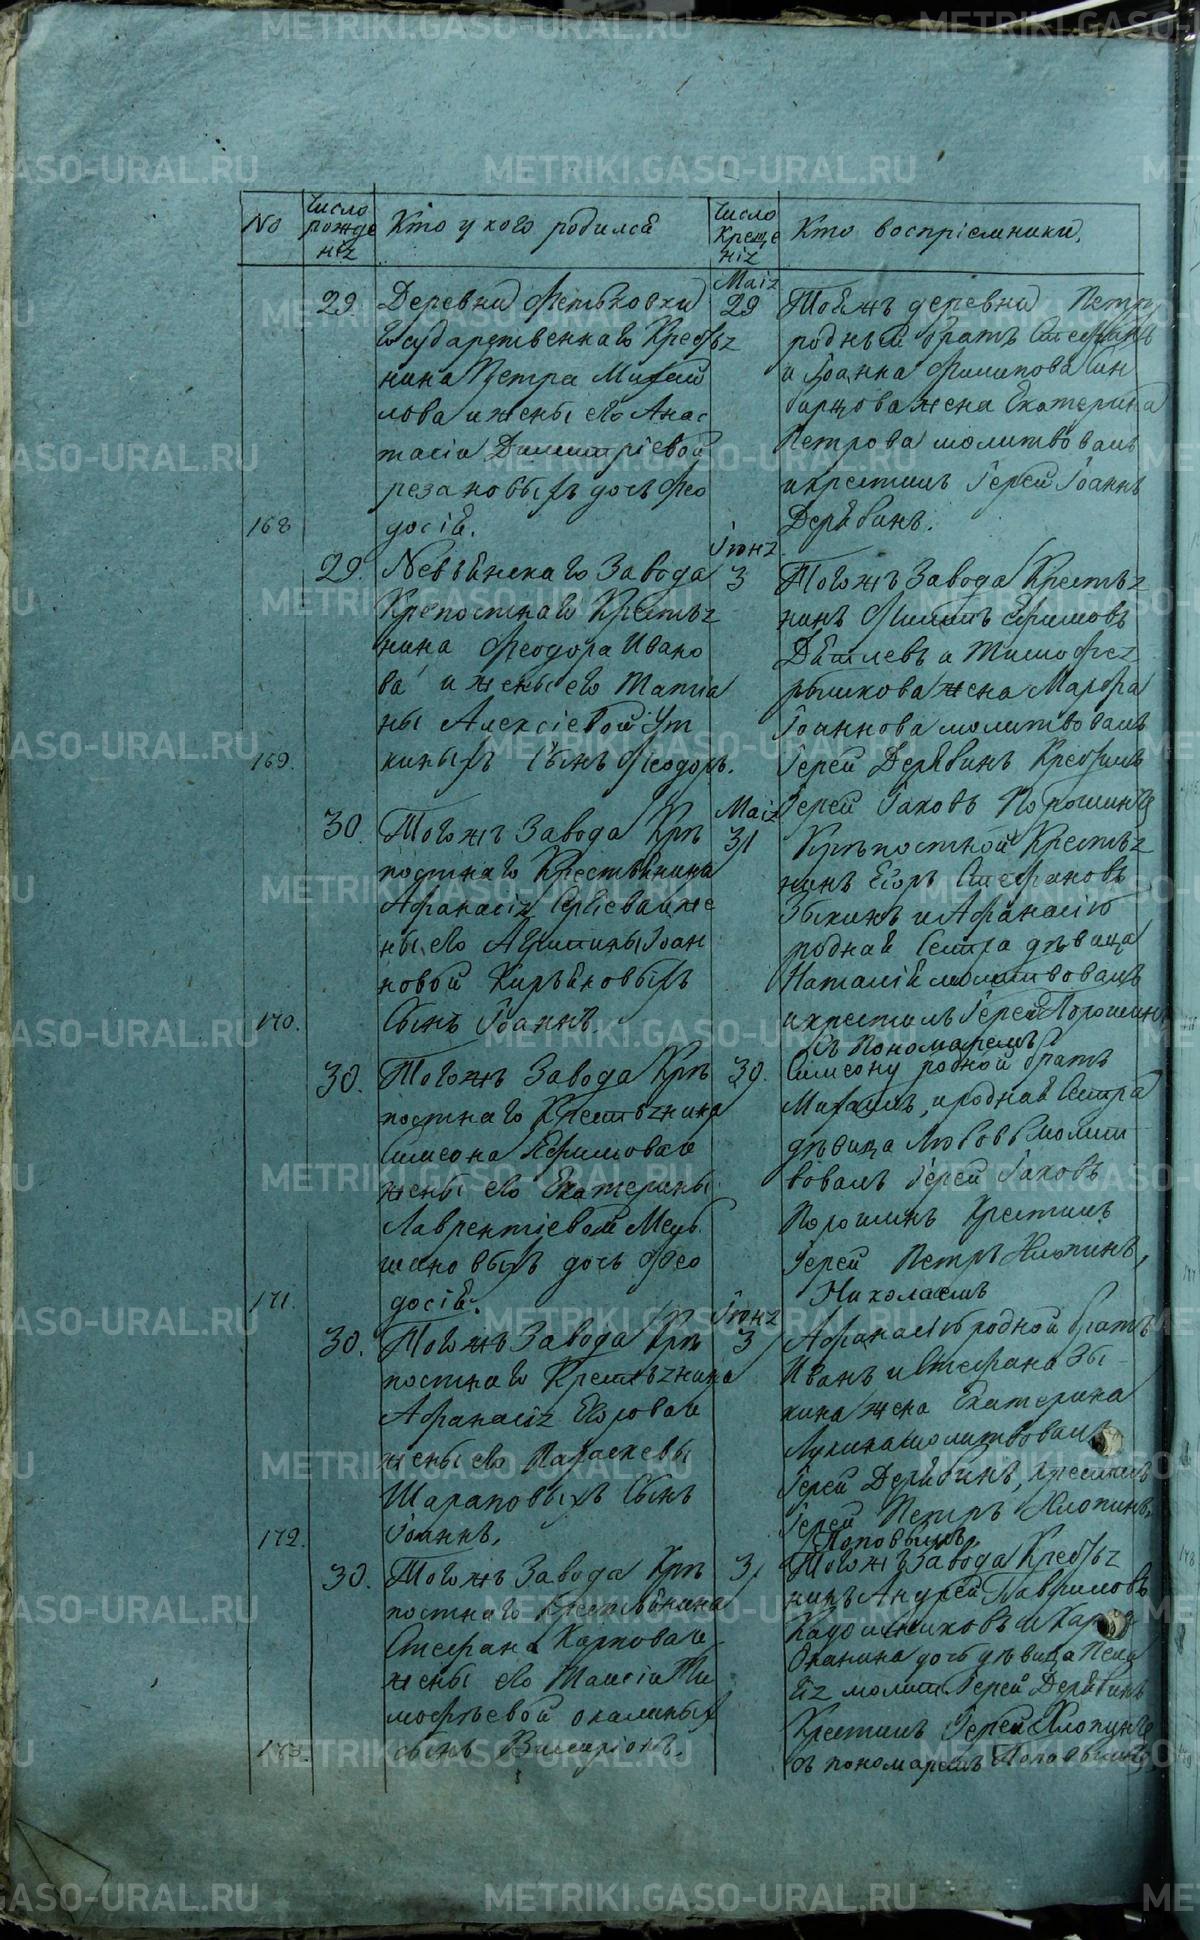 No
Число рожде нія
Кто у кого родился
Число Креще нія
Кто воспріемники.
Маія
29
Деревни Фетьковки
Государственнаго Кресть
нина Петра Михай
лова и жены его Анас
тасіи Димитріевой
резановыхъ дочь Фео
168
досія.
29
Тоежъ деревни Петру
родный братъ Стефанъ
и Іоанна Филипова
жена Екатерина
Петрова молитвовалъ
и крестилъ Іерей Іоаннъ
Дерябинъ.
29.
Невьянскаго Завода
Крепостнаго Крестья
нина Феодора Ивано
ва и жены его Татіа
ны Алексіевой Ут
169.
киныхъ Сынъ Феодоръ.
Іюня
3
Тогожъ Завода Крестья
нинъ Филипъ Ефимовъ
Дѣтлевъ и Тимофея
рычкова жена Марфа
Іоаннова молитвовалъ
Іерей Дерябинъ Крестилъ
Іерей Іаковъ Порошинъ
30.
Тогожъ Завода Крѣ
постнаго Крестьянина
Афанасія Сергіева и же
ны его Агрипины Іоан
новой Кирьяновыхъ
170.
Сынъ Іоаннъ
Маія
31
Крѣпостной Крестья
нинъ Егоръ Стефановъ
Зыкинъ и Афанасію
родная Сестра дѣвица
Наталія молитвовалъ
и крестилъ Іерей Порошинъ
съ Пономаремъ
30.
Тогожъ Завода Крѣ
постнаго Крестьянина
Симеона Ефимова и
жены его Екатерины
Лаврентіевой Мень
шеновыхъ дочь Фео
171.
досія.
30.
Симеону родной братъ
Михаилъ, и родная Сестра
дѣвица Любовь молит
вовалъ Іерей Іаковъ
Порошинъ Крестилъ
Іерей Петръ Хлопинъ,
Николаемъ
30.
Тогожъ Завода Крѣ
постнаго Крестьянина
Афанасія Егорова и
жены его Параскевы
Шараповыхъ Сынъ
172.
Іоаннъ.
Іюня
3
Афанасію родной братъ
Иванъ и Стефана Зы
кина жена Екатерина
Лукина молитвовалъ
Іерей Дерябинъ, Крестилъ
Іерей Петръ Хлопинъ,
Поповымъ
30.
Тогожъ Завода Крѣ
постнаго Крестьянина
Стефана Карпова и
жены его Таисіи Ти
мофѣевой окалиныхъ
173.
сынъ Виссаріонъ.
3
Тогожъ Завода Крестья
нинъ Андрей Гавриловъ
дочь дѣвица Пела
гія молит. Іерей Дерябинъ
Крестилъ Іерей Хлопинъ
съ пономаремъ Поповымъ
METRIKI.GASO-URAL.RU